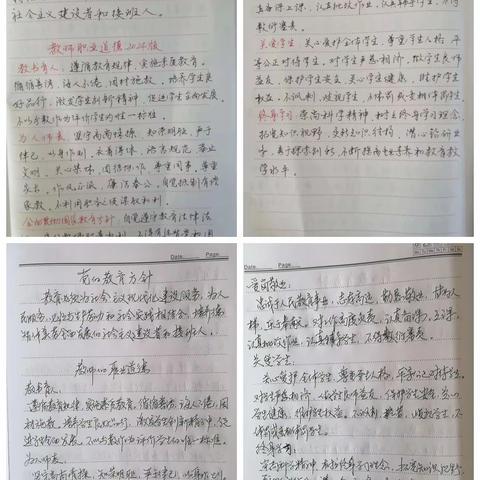 社会主义建设者和接班人。
教师职业道德2024版
教书育人：遵循教育规律，实施素质教育。
循循善诱，诲人不倦，因材施教。培养学生良
好品行，激发学生创新精神，促进学生全面发展。
不以分数作为评价学生的唯一标准。
为人师表：坚守高尚情操，知荣明耻，严于
律己，以身作则。衣着得体，语言规范，举止
文明。关心集体，团结协作，尊重同事，尊重
家长。作风正派，廉洁奉公。自觉抵制有偿
家教，不利用职务之便谋取私利。
全面贯彻国家教育方针，自觉遵守教育法律法
备课上课，认真批改作业，认真辅导学生，不得
敷衍塞责。
关爱学生：关心爱护全体学生，尊重学生人格，平
等公正对待学生。对学生严慈相济，做学生良师
益友。保护学生安全，关心学生健康，维护学生
权益。不讽刺、歧视学生，不体罚或变相体罚学生。
终身学习：崇尚科学精神，树立终身学习理念，
拓宽知识视野，更新知识结构。潜心钻研业
务，勇于探索创新，不断提高专业素养和教育教
学水平。
Date. Page.
党的教育方针
教育必须为社会主义现代化建设服务，为人
民服务，必须与生产劳动和社会实践相结合，培养德
智体美劳全面发展的社会主义建设者和接班人。
教师的职业道德
教书育人：
遵循教育规律，实施素质教育。循循善诱，诲人不倦，因
材施教。培养学生良好品行，激发学生创新精神，促
进学生全面发展。不以分数作为评价学生的唯一标准。
为人师表：
坚守高尚情操，知荣明耻，严于律己，以身作则。
Date. Page.
爱岗敬业：
忠诚于人民教育事业，志存高远，勤恳敬业，甘为人
梯，乐于奉献。对工作高度负责，认真备课、上课，
认真批改作业，认真辅导学生，不得敷衍塞责。
关爱学生：
关心爱护全体学生，尊重学生人格，平等公正对待学生。
对学生严慈相济，做学生良师益友。保护学生安全，关心
学生健康，维护学生权益。不讽刺、挖苦、歧视学生，不
体罚或变相体罚学生。
终身学习：
崇尚科学精神，树立终身学习理念，拓宽知识视野，